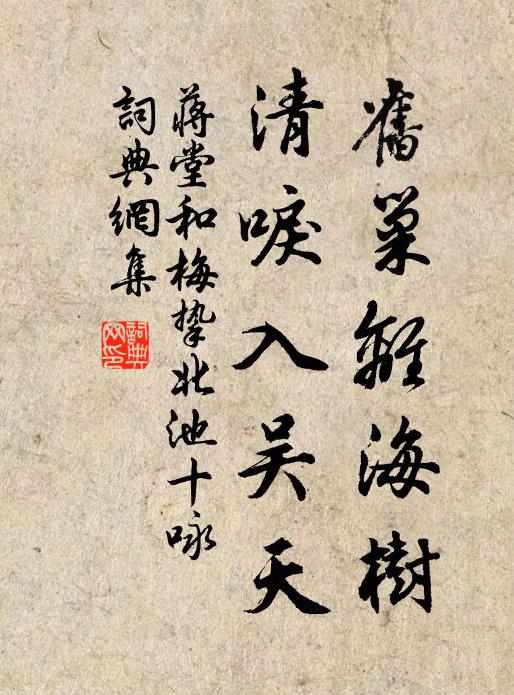 舊巢離海樹
清唳入吴天
蔣堂和梅摯北池十咏
詞典網集
詞典網印